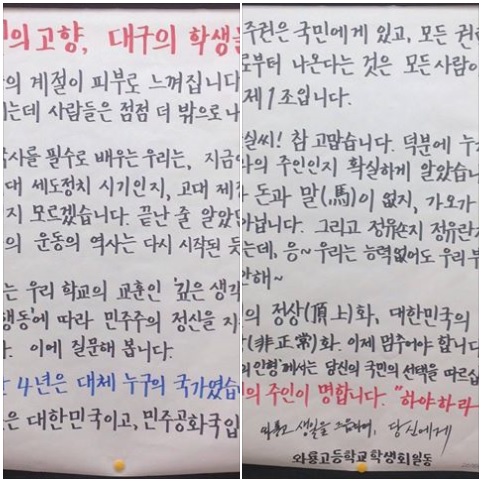 의 고향, 대구의 학생들
의 계절이 피부로 느껴집니다
는데 사람들은 점점 더 밖으로 나
사를 필수로 배우는 우리는, 지금
대 세도정치 시기인지, 고대 제
지 모르겠습니다. 끝난 줄 알았던
의 운동의 역사는 다시 시작된 듯
는 우리 학교의 교훈인 '깊은 생각
행동'에 따라 민주주의 정신을 지
. 이에 질문해 봅니다.
4년은 대체 누구의 국가였습
은 대한민국이고, 민주공화국입
주권은 국민에게 있고, 모든 권
로부터 나온다는 것은 모든 사람이
제1조입니다.
실씨! 참 고맙습니다. 덕분에 누
의 주인인지 확실하게 알았습니
돈과 말(馬)이 없지, 가오가
아닙니다. 그리고 정유손지 정유란
는데, 응~ 우리는 능력없어도 우리 부
안해~
의 정상(頂上)화, 대한민국의
(非正常)화. 이제 멈추어야 합니다
의 인형'께서는 당신의 국민의 선택을 따르십
의 주인이 명합니다. "하야하라
와룡고 생일을 드음하여, 당신에게
와룡고등학교 학생회 일동